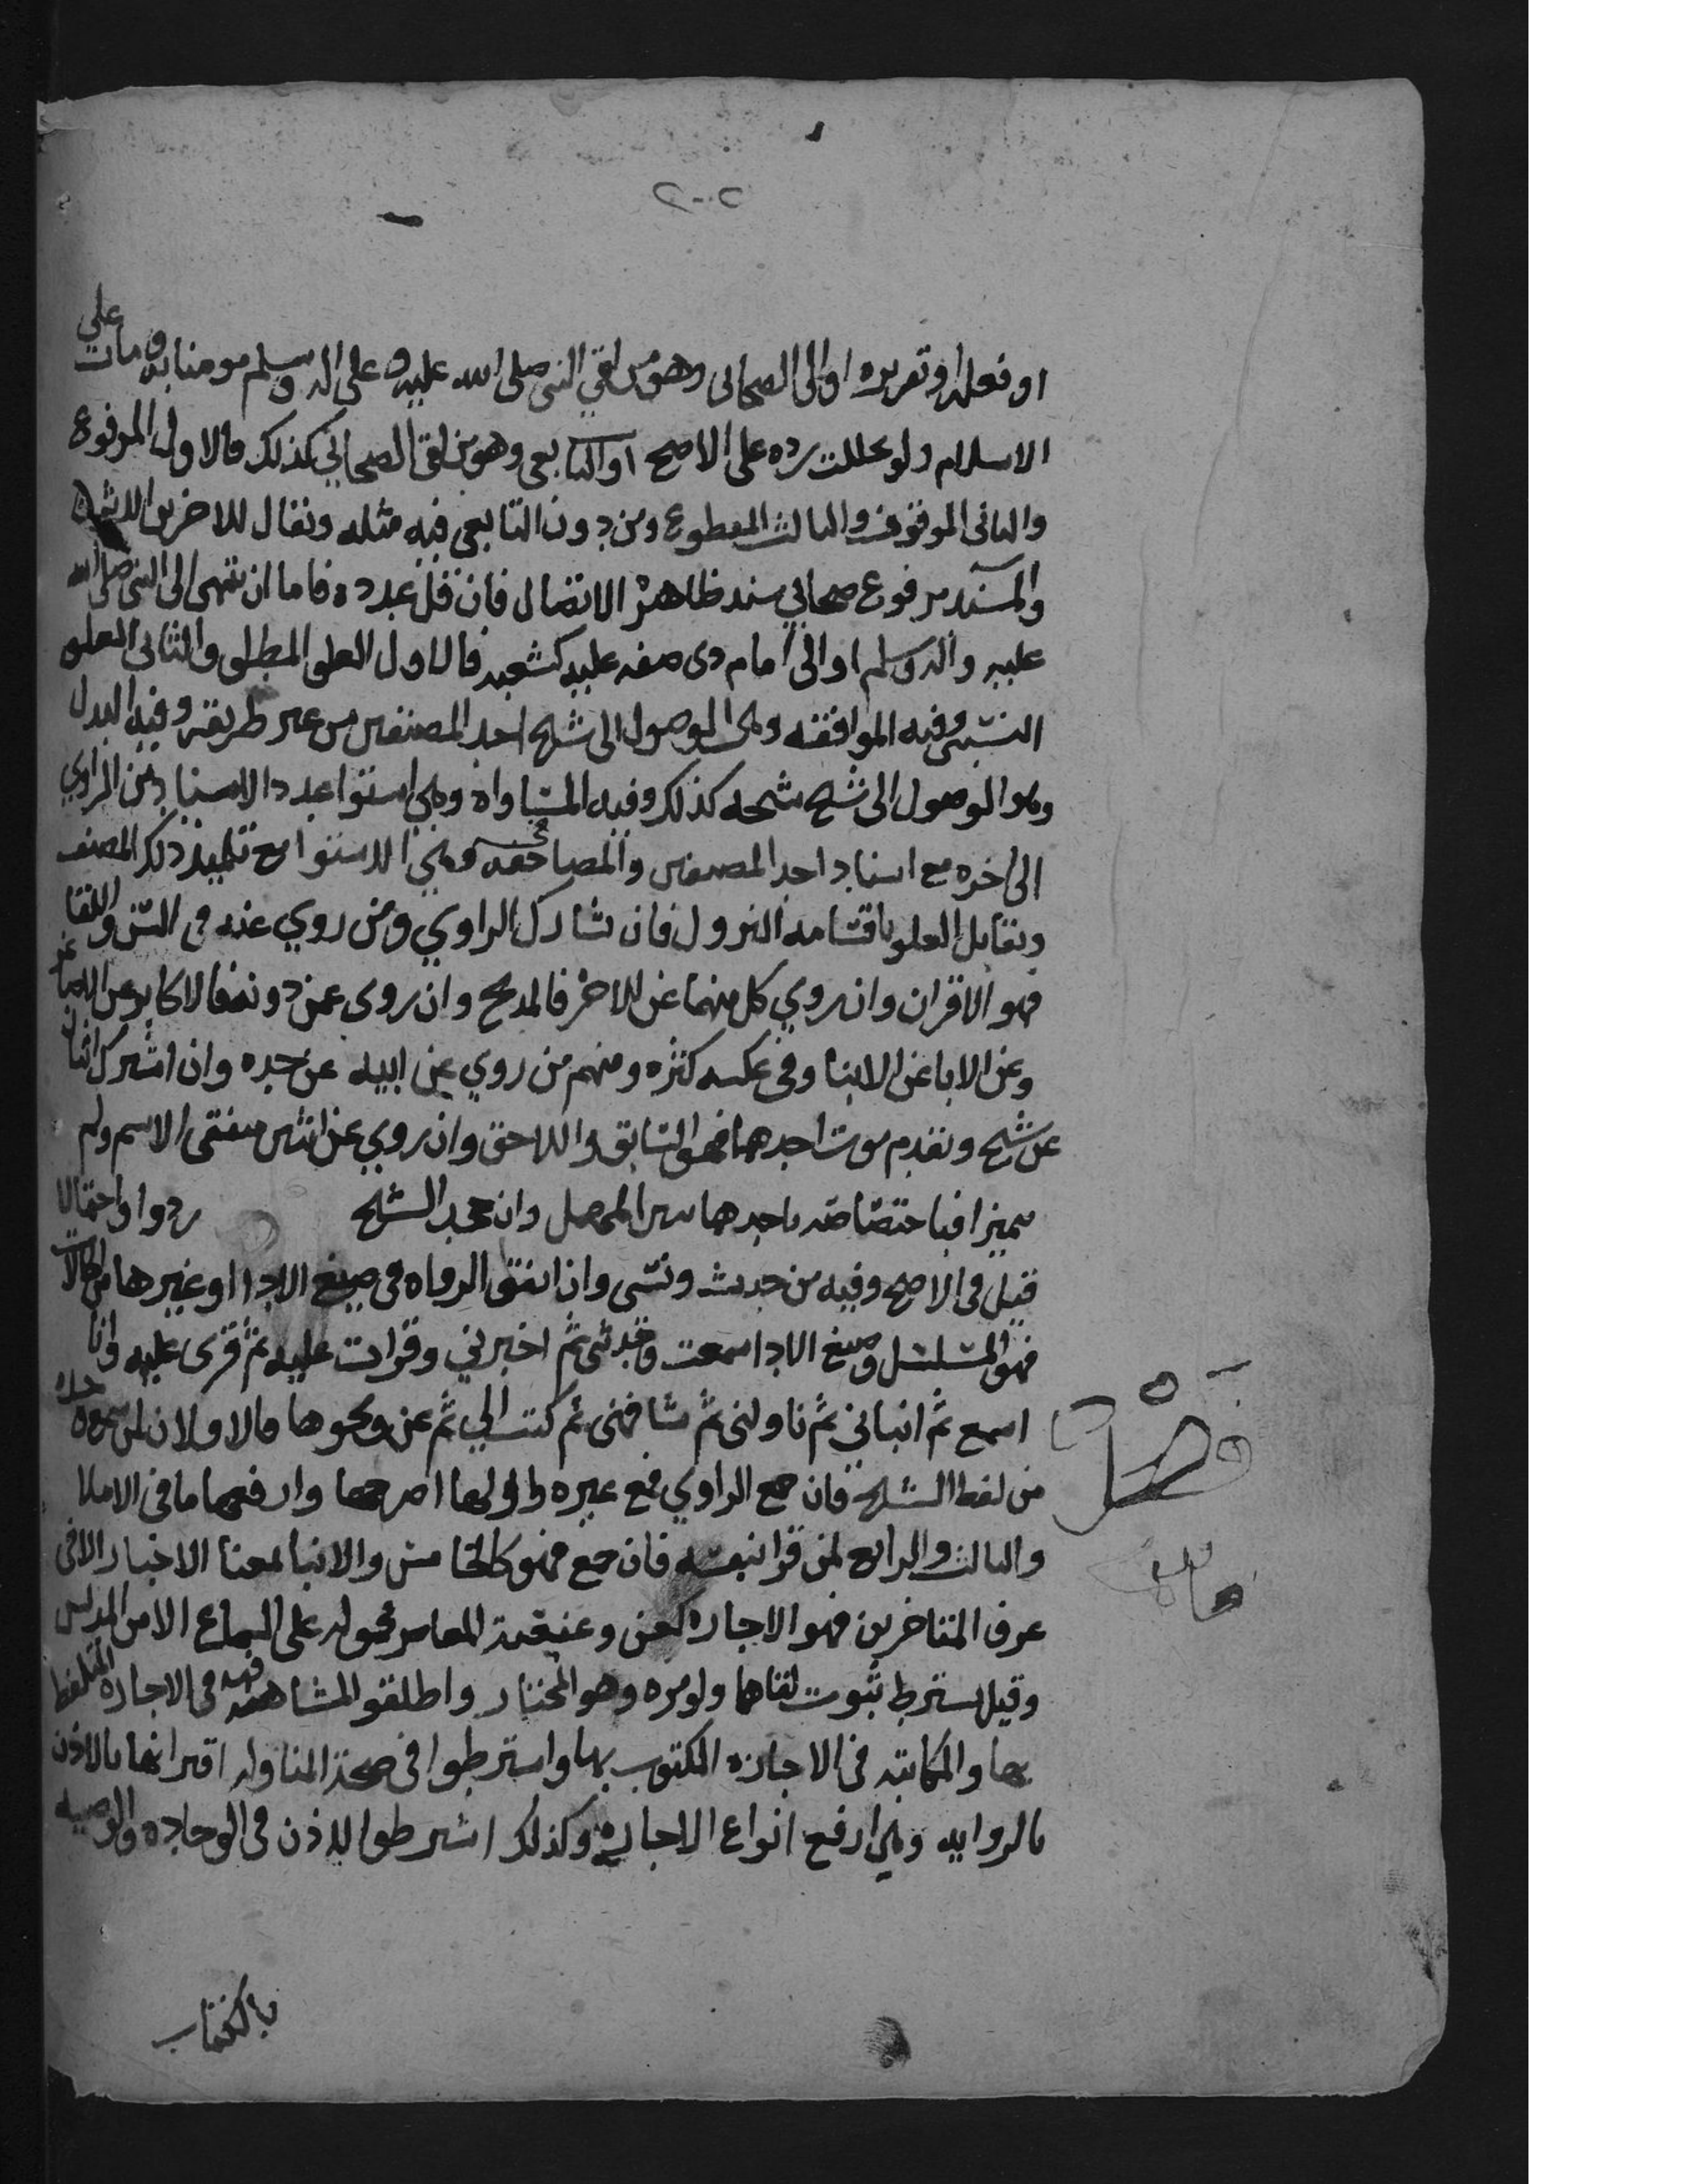 ٢٠٠٢
او فعله او تقريره او الى الصحابى وهو من لقي النبى صلى الله عليه و على اله وسلم مومنا به ومات على
الاسلام ولو تخللت رده على الاصح او التابعى وهو من لقى الصحابي كذلك فالاول المرفوع
والثانى الموقوف والثالث المقطوع ومن دون التابعي فيه مثله ويقال للاخرين الاثر
والمسند مرفوع صحابي بسند ظاهره الاتصال فان قل عدده فاما ان ينتهى الى النبى صلى الله
عليه واله وسلم او الى امام ذى صفه عليه كشعبه فالاول العلو المطلق والثانى العلو
النسبى وفيه الموافقه وهى الوصول الى شيخ احد المصنفين من غير طريقه وفيه البدل
وهو الوصول الى شيخ شيخه كذلك وفيه المساواه وهى استوا عدد الاسناد من الراوي
الى اخره مع اسناد احد المصنفين والمصافحه وهى الاستوا مع تلميذ ذلك المصنف
ويقابل العلو باقسامه النزول فان تشارك الراوي ومن روي عنه فى السن واللقا
فهو الاقران وان روي كل منهما عن الاخر فالمدبج وان روى عمن دونه فالاكابر عن الاصاغر
وعن الابا عن الابنا وفى عكسه كثره ومنهم من روي عن ابيه عن جده وان اشترك اثنان
عن شيخ وتقدم موت احدهما فهو السابق واللاحق وان روي عن اثنين متفقى الاسم ولم
يميزا فباختصاصه باحدهما يتبين المهمل وان جحد الشيخ ردوا واحتمالا
قبل فى الاصح وفيه من حدث ونسى وان اتفق الرواه فى صيغ الادا او غيرها من الحالات
فهو المسلسل وصيغ الادا سمعت وحدثنى ثم اخبرني وقرات عليه ثم قرى عليه وانا
اسمع ثم انباني ثم ناولنى ثم شافهنى ثم كتب الي ثم عن ونحوها فالاولان لمن سمع وحده
من لفظ الشيخ فان جمع الراوي فمع غيره واولها اصرحها وارفعها ما فى الاملا
والثالث والرابع لمن قرا بنفسه فان جمع فهو كالخامس والانبا بمعنا الاخبار الا فى
عرف المتاخرين فهو الاجازه كعن وعنعنة المعاصر محموله على السماع الا من المدلس
وقيل يشترط ثبوت لقاهما ولو مره وهو المختار واطلقو المشافهه فى الاجازه المتلفظ
بها والمكاتبه فى الاجازه المكتوب بها واشترطوا فى صحة المناوله اقترانها بالاذن
بالروايه وهى ارفع انواع الاجازه وكذلك اشترطوا الاذن فى الوجاده والوصيه
بالكتاب